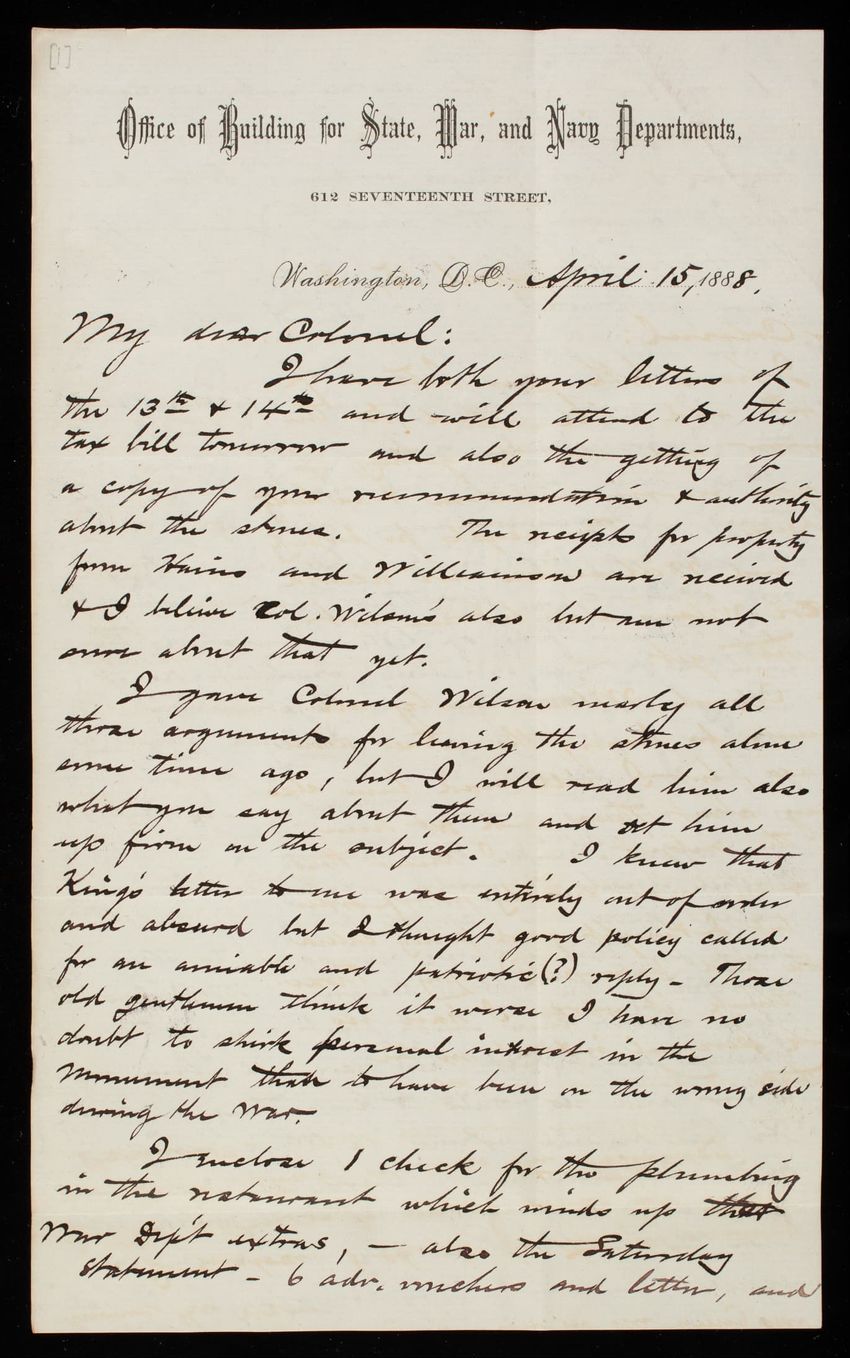 [1]
Office of Building for State, War, and Navy Departments,
612 SEVENTEENTH STREET,
Washington, D.C., April 15, 1888.
My dear Colonel:
I have both your letters of
the 13th & 14th and will attend to the
tax bill tomorrow and also the getting of
a copy of your recommendation & authority
about the stones. The reciepts for property
from Hains and Williamson are received
& I believe Col. Wilson's also but am not
sure about that yet.
I gave Colonel Wilson nearly all
those arguments for leaving the stones alone
some time ago, but I will read him also
what you say about them and set him
up firm on the subject. I knew that
King's letter to me was entirely out of order
and absurd but I thought good policy called
for an amiable and patriotic (?) reply - Those
old gentlemen think it worse I have no
doubt to shirk personal interest in the
Monument than to have been on the wrong side
during the War.
I enclose 1 check for the plumbing
in the restaurant which winds up that
War Dep't extras, - also the Saturday
statement - 6 adv. vouchers and letter, and